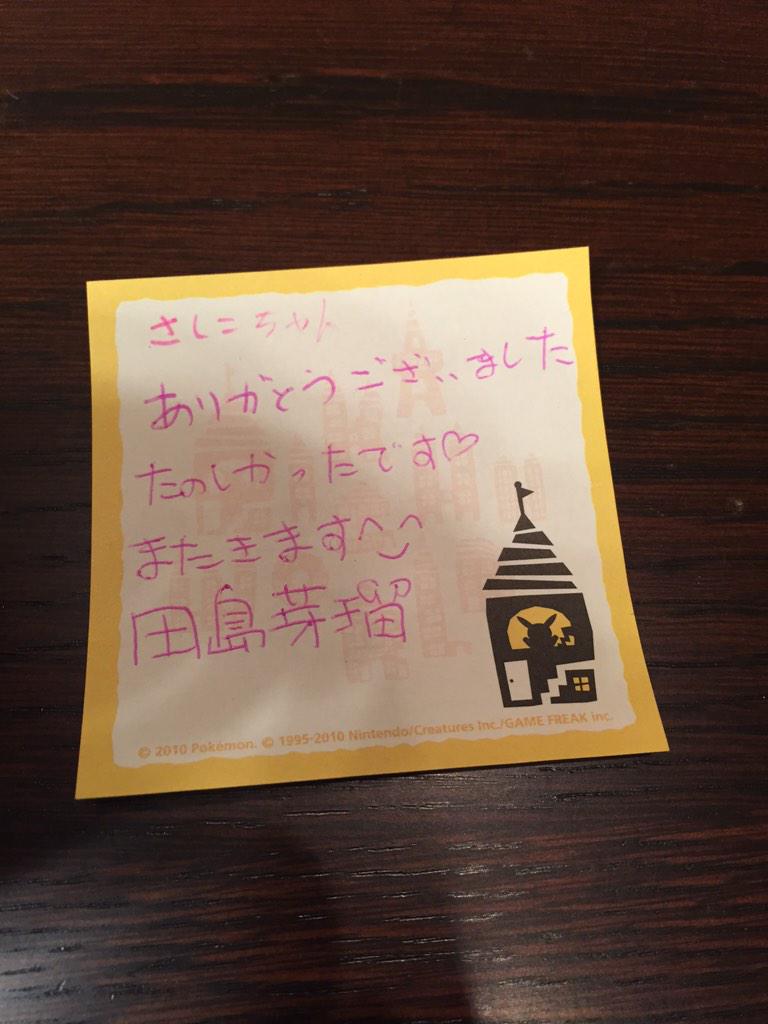 さしこちゃん
ありがとうございました
たのしかったです♡
またきます^‿^
田島芽瑠
© 2010 Pokémon. © 1995-2010 Nintendo/Creatures Inc./GAME FREAK inc.